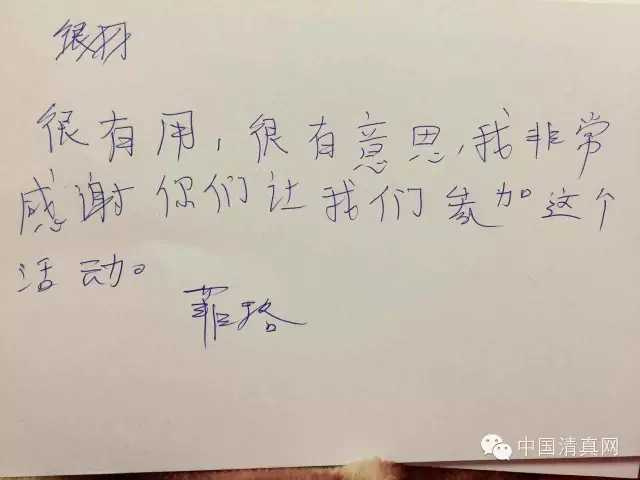 很有用,很有意思,我非常
感谢你们让我们参加这个
活动。
中国清真网